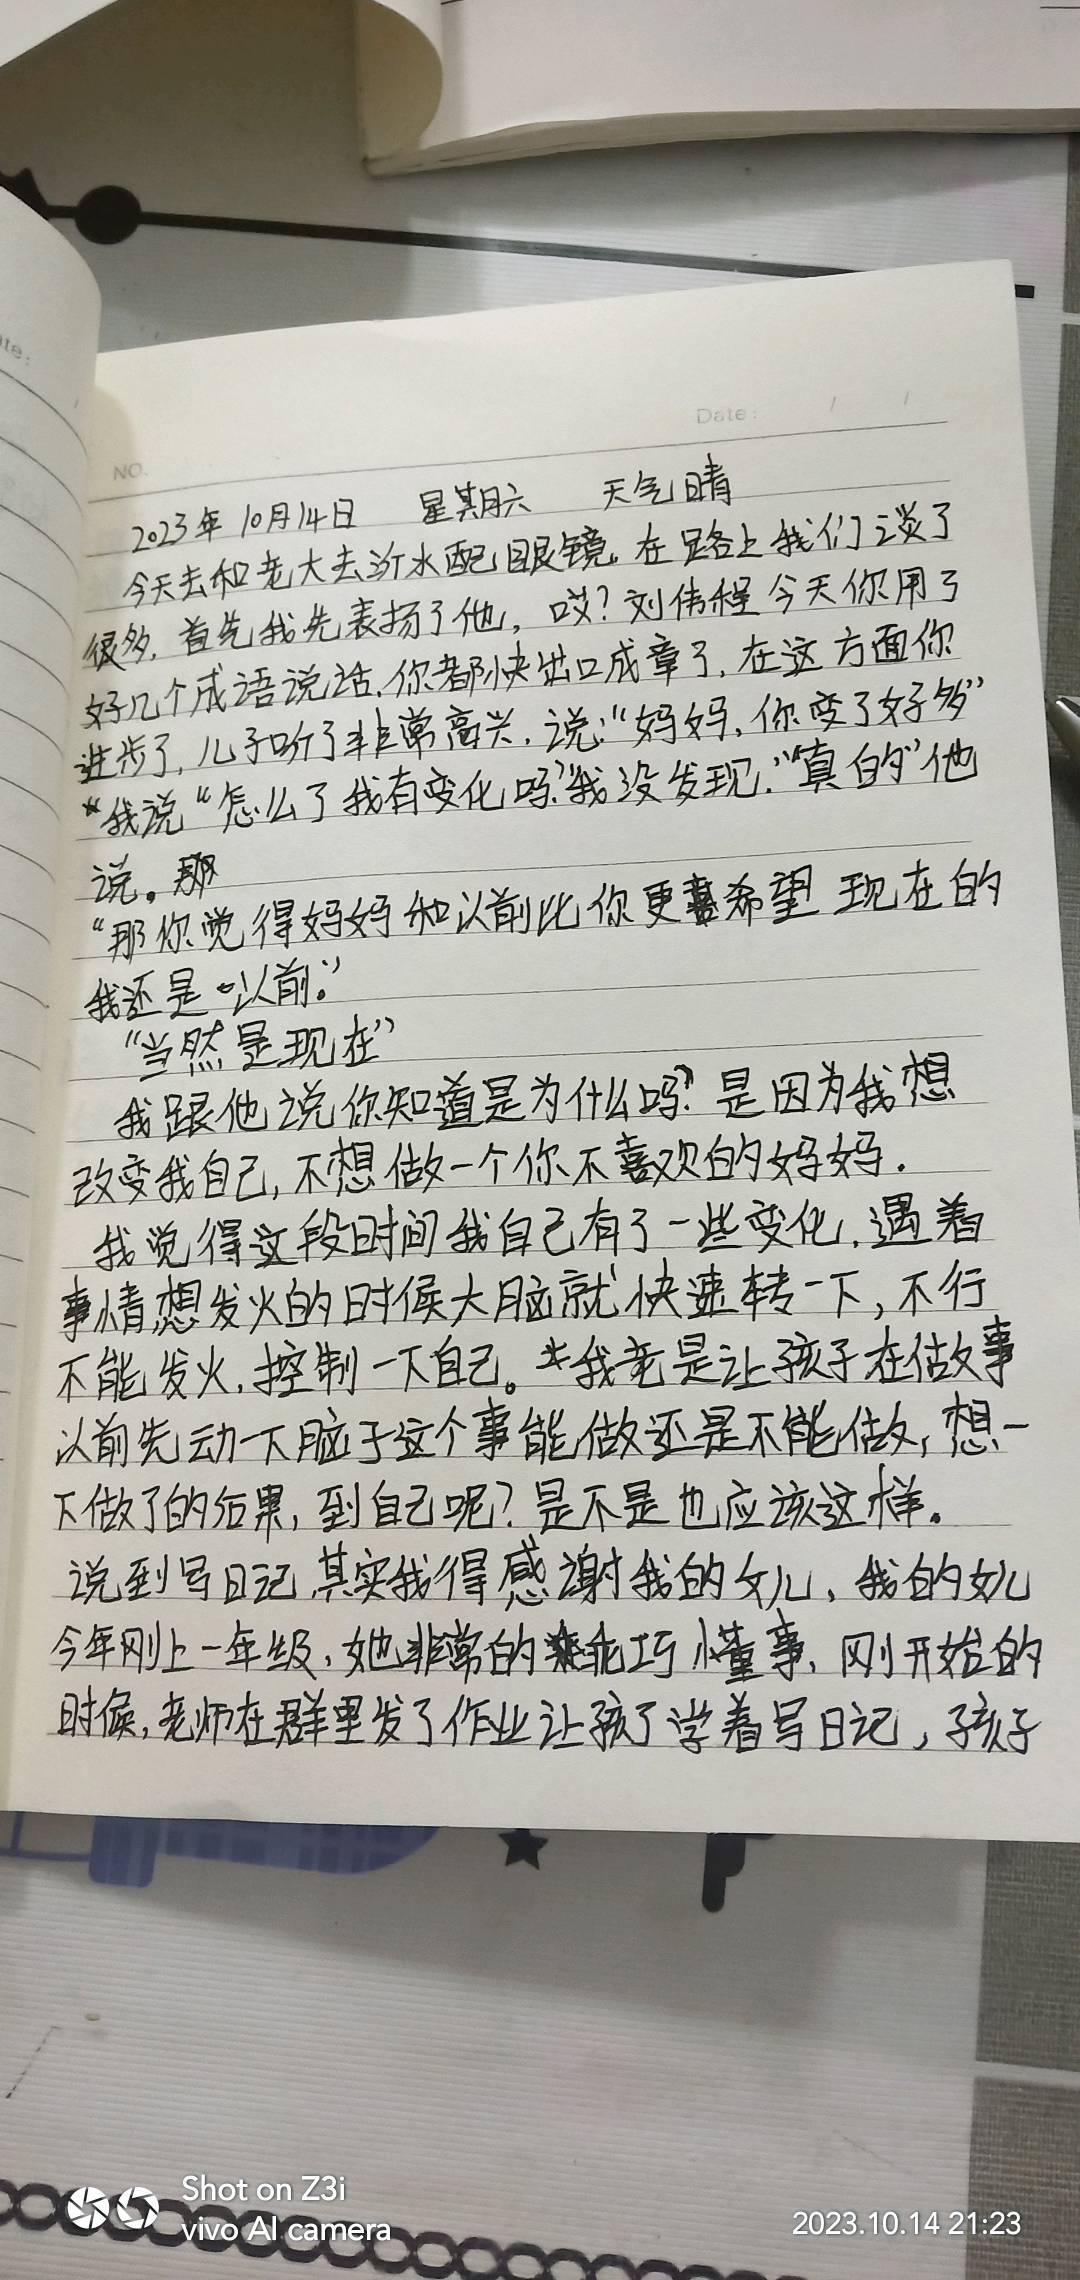 Date: / /
NO.
2023年10月14日 星期六 天气晴
今天去和老大去沂水配眼镜.在路上我们谈了
很多.首先我先表扬了他,哎?刘伟程今天你用了
好几个成语说话.你都快出口成章了,在这方面你
进步了,儿子听了非常高兴.说:"妈妈、你变了好多"
"我说"怎么了我有变化吗?我没发现.""真的"他
说。那
"那你觉得妈妈和以前比你更喜希望现在的
我还是以前."
"当然是现在"
我跟他说你知道是为什么吗?是因为我想
改变我自己,不想做一个你不喜欢的妈妈.
我觉得这段时间我自己有了一些变化.遇着
事情想发火的时候大脑就快速转一下,不行
不能发火.控制一下自己。我老是让孩子在做事
以前先动一下脑子这个事能做还是不能做,想一
下做了的后果,到自己呢?是不是也应该这样.
说到写日记其实我得感谢我的女儿,我的女儿
今年刚上一年级,她非常的乖巧懂事,刚开始的
时候,老师在群里发了作业让孩子学着写日记,孩子
te:
Shot on Z3i
vivo AI camera
2023.10.14 21:23